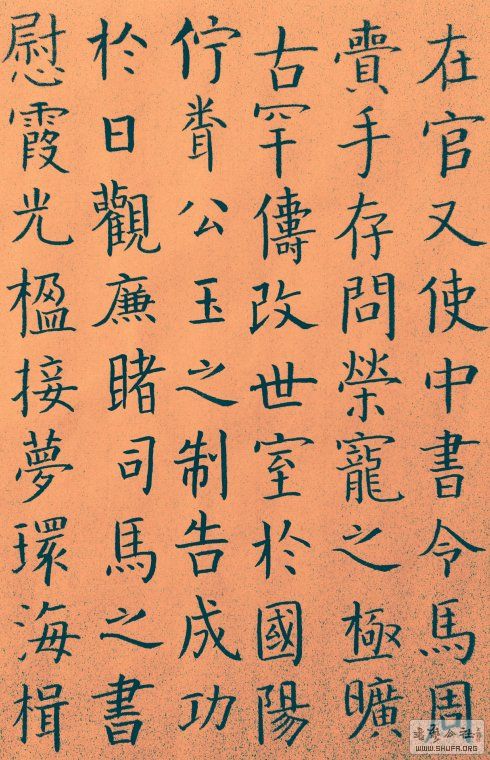 在官又使中書令馬周
賷手存問榮寵之極曠
古罕儔改世室於國陽
佇公玉之制告成功
於日觀庶睹司馬之書
慰霞光楹接夢環海楫
WWW.SHUFA.ORG